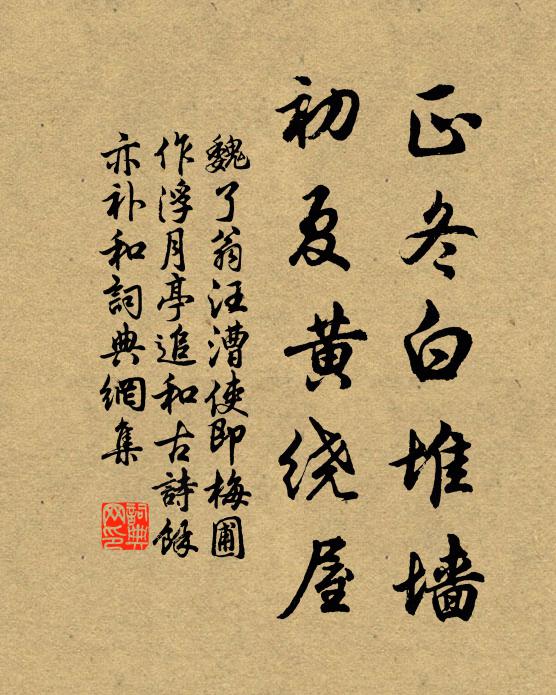 正冬白堆墙
初夏黄绕屋
魏了翁汪漕使即梅圃
作浮月亭追和古詩餘
亦补和詞典網集
詞典網印